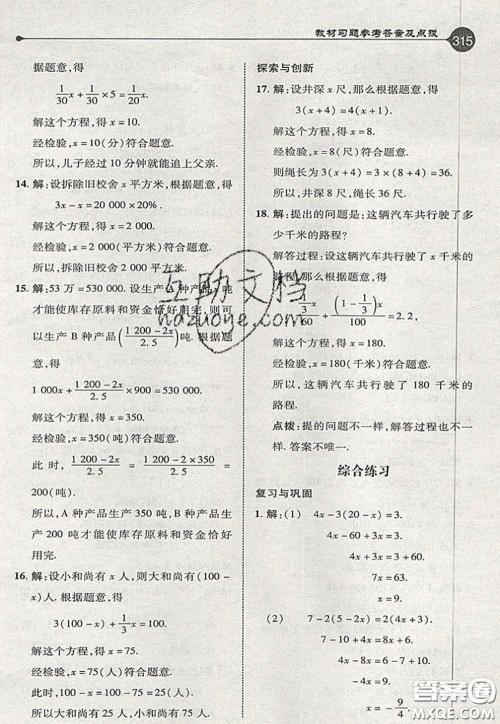 教材习题参考答案及点拨
315
据题意,得
1/30 x + 1/20 × 5 = 1/20 x.
解这个方程,得 x=10.
经检验,x=10(分)符合题意.
所以,儿子经过 10 分钟就能追上父亲.
14. 解:设拆除旧校舍 x 平方米,根据题意,得
3x-x=20 000×20%.
解这个方程,得 x=2 000.
经检验,x=2 000(平方米)符合题意.
所以,拆除旧校舍 2 000 平方米.
15. 解:53 万=530 000. 设生产 A 种产品 x 吨
才能使库存原料和资金恰好用完,则可
以生产 B 种产品(1 200-2x / 2.5)吨. 根据题
意,得
1 000x+(1 200-2x / 2.5)×900=530 000.
解这个方程,得 x=350.
经检验,x=350(吨)符合题意.
此时,(1 200-2x / 2.5)=(1 200-2×350 / 2.5)=
200(吨).
所以,A 种产品生产 350 吨,B 种产品生产
200 吨才能使库存原料和资金恰好
用完.
16. 解:设小和尚有 x 人,则大和尚有(100-
x)人. 根据题意,得
3(100-x)+1/3 x=100.
解这个方程,得 x=75.
经检验,x=75(人)符合题意.
此时,100-x=100-75=25(人).
所以,大和尚有 25 人,小和尚有 75 人.
探索与创新
17. 解:设井深 x 尺,那么根据题意,得
3(x+4)=4(x+1).
解这个方程,得 x=8.
经检验,x=8(尺)符合题意.
则绳长为 3(x+4)=3×(8+4)=36.
所以,井深 8 尺,绳长 36 尺.
18. 解:提出的问题是:这辆汽车共行驶了多
少千米的路程?
解答过程:设这辆汽车共行驶了 x 千米
的路程,那么根据题意,得
1/3 x / 60 + (1-1/3)x / 100 = 2.2,
解这个方程,得 x=180.
经检验,x=180(千米)符合题意.
所以,这辆汽车共行驶了 180 千米的
路程.
点拨:提的问题不一样,解答过程也不一
样. 答案不唯一.
综合练习
复习与巩固
1. 解:(1) 4x-3(20-x)=3.
4x-60+3x=3.
7x=63.
x=9.
(2) 7-2(5-2x)=2(4x+3).
7-10+4x=8x+6.
4x-8x=6-7+10.
-4x=9.
x=-9/4.
互助文档
hazuoye.com
答案圈
MXQE.COM